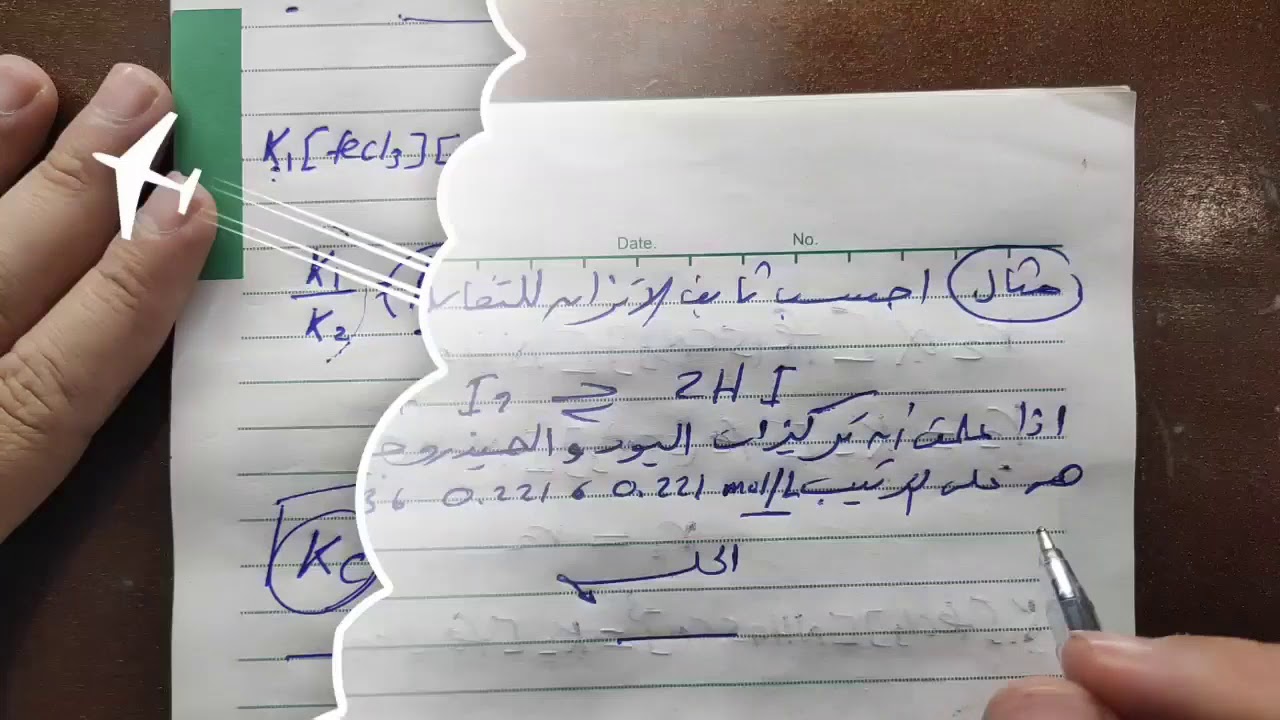 K₁[fecl₃][
K₁
K₂
Kc
Date. No.
مثال احسب ثابت الاتزان للتفاعل
I₂ ⇌ 2HI
اذا علمت أن تركيزات اليود والهيدروجـ
هي على الترتيب 0.221 mol/L 6 0.221 6
الحل